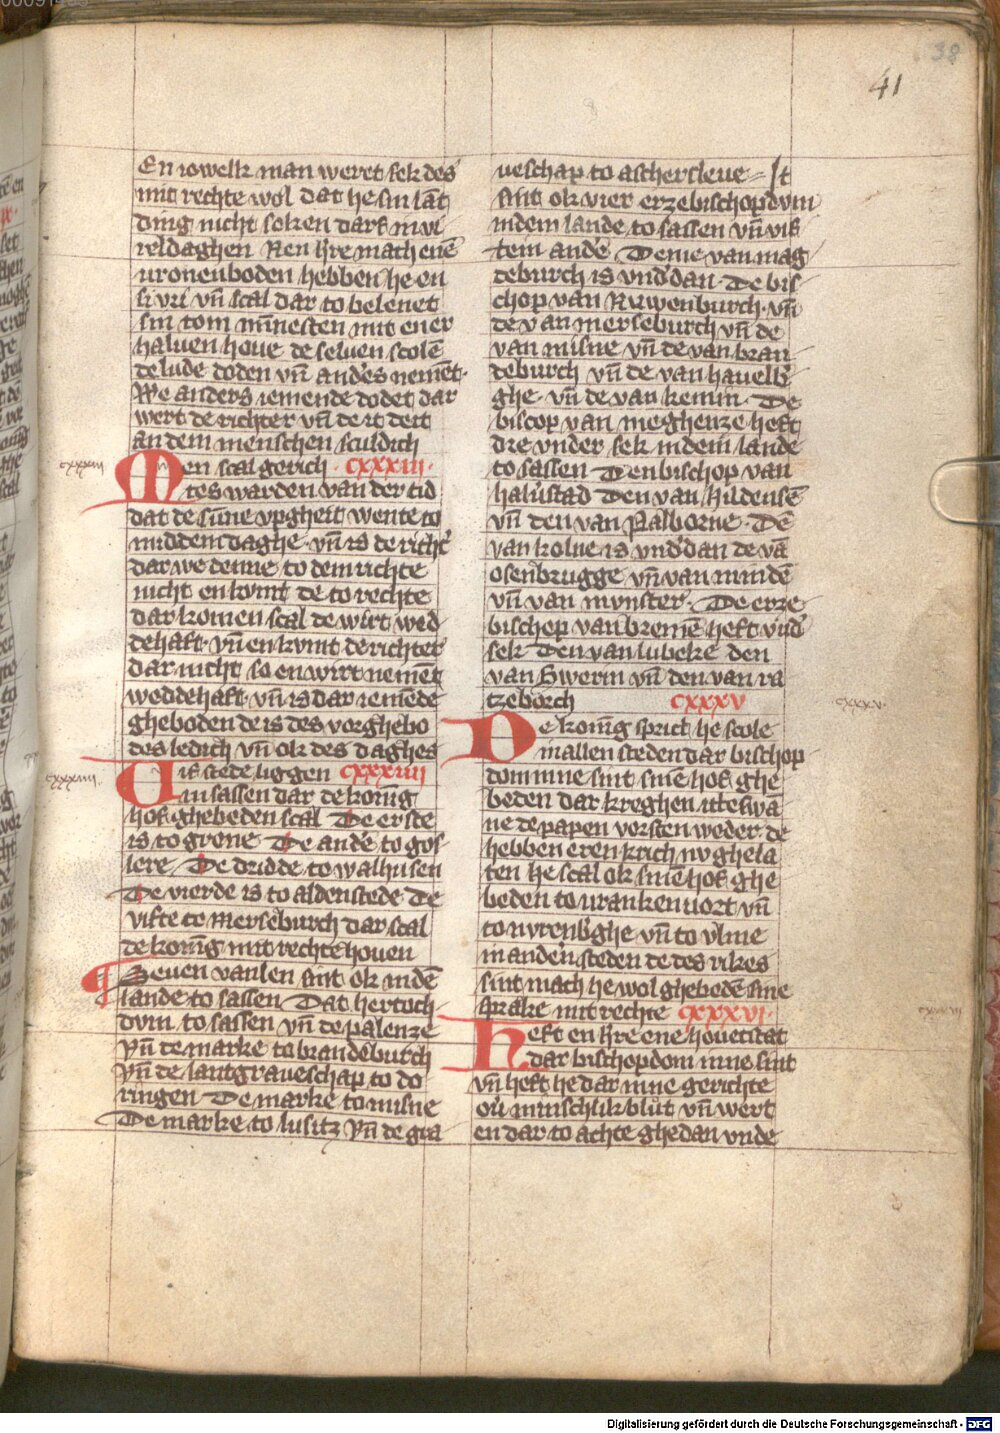 41
38
En iowelk man weret sek des
mit rechte wol dat he sin lāt
ding nicht soken darf in vi
reldaghen Nen h're mach enē
vronenboden hebben he en
si vri vn̄ scal dar to belenet
sin tom mīnesten mit ener
haluen houe de seluen scolē
de lude doden vn̄ and's nemēt
We anders iemende dodet dar
wert de richter vn̄ de it deit
an dem menschen sculdich
Men scal gerich cxxxiii
tes warden van der tid
dat de sūne vpgheit wente to
middemdaghe vn̄ is de richt'
dar we denne to dem richte
nicht en kvmt de to rechte
dar komen scal de wirt wed
dehaft vn̄ en kvmt de richter
dar nicht so en wirt nemēt
weddehaft vn̄ is dar iemēde
gheboden de is des vorghebo
des ledich vn̄ ok des daghes
Vif stede liggen cxxxiiii
in sassen dar de konīg
hof ghebeden scal De erste
is to grone De and'e to gos
lere De dridde to walhusen
De vierde is to aldenstede De
vifte to Merseburch dar scal
de konīg mit rechte hoven
Seuen vanlen sint ok in dē
lande to sassen Dat hertoch
dvm to sassen vn̄ de palenze
Vn̄ de marke to brandēburch
Vn̄ de lantgraueschap to do
ringen De marke to misne
De marke to lusitz Vn̄ de gra
veschap to aschersleue It
sint ok vier erzebischopdvm
in dem lande to sassen vn̄ vif
tein and'e De me van mag
deburch is vnd'dan De bis
chop van Nuwenburch vn̄
de van merseburch vn̄ de
van misne vn̄ de van bran
deburch vn̄ de van hauelb'
ghe vn̄ de van kemin De
biscop van meghenze heft
dre vnder sek in dem lande
to sassen Den bischop van
halu'stad Den van hildensē
vn̄ den van Palborne De
van kolne is vnd'dan de vā
osenbrugge vn̄ van mindē
vn̄ van mvnster De erze
bischop van bremē heft vnd'
sek Den van lubeke den
van Swerin vn̄ den van ra
tzeborch cxxxv
De konīg sprich he scole
in allen steden dar bischop
dom inne sint sinē hof ghe
beden dar kreghen uteswa
ne de papen vorsten weder de
hebben eren krich nv ghela
ten he scal ok sinē hof ghe
beden to vrankenvort vn̄
to nvrenb'ghe vn̄ to vlme
in and'en steden de des rikes
sint mach he wol ghebedē sine
sprake mit rechte cxxxvi
Heft en h're ene houetstat
dar bischopdom inne sint
vn̄ heft he dar inne gerichte
ou' minschlik blut vn̄ wert
en dar to achte ghedan vnde
cxxxiii
cxxxiiii
cxxxv
cxxxvi
Digitalisierung gefördert durch die Deutsche Forschungsgemeinschaft - DFG